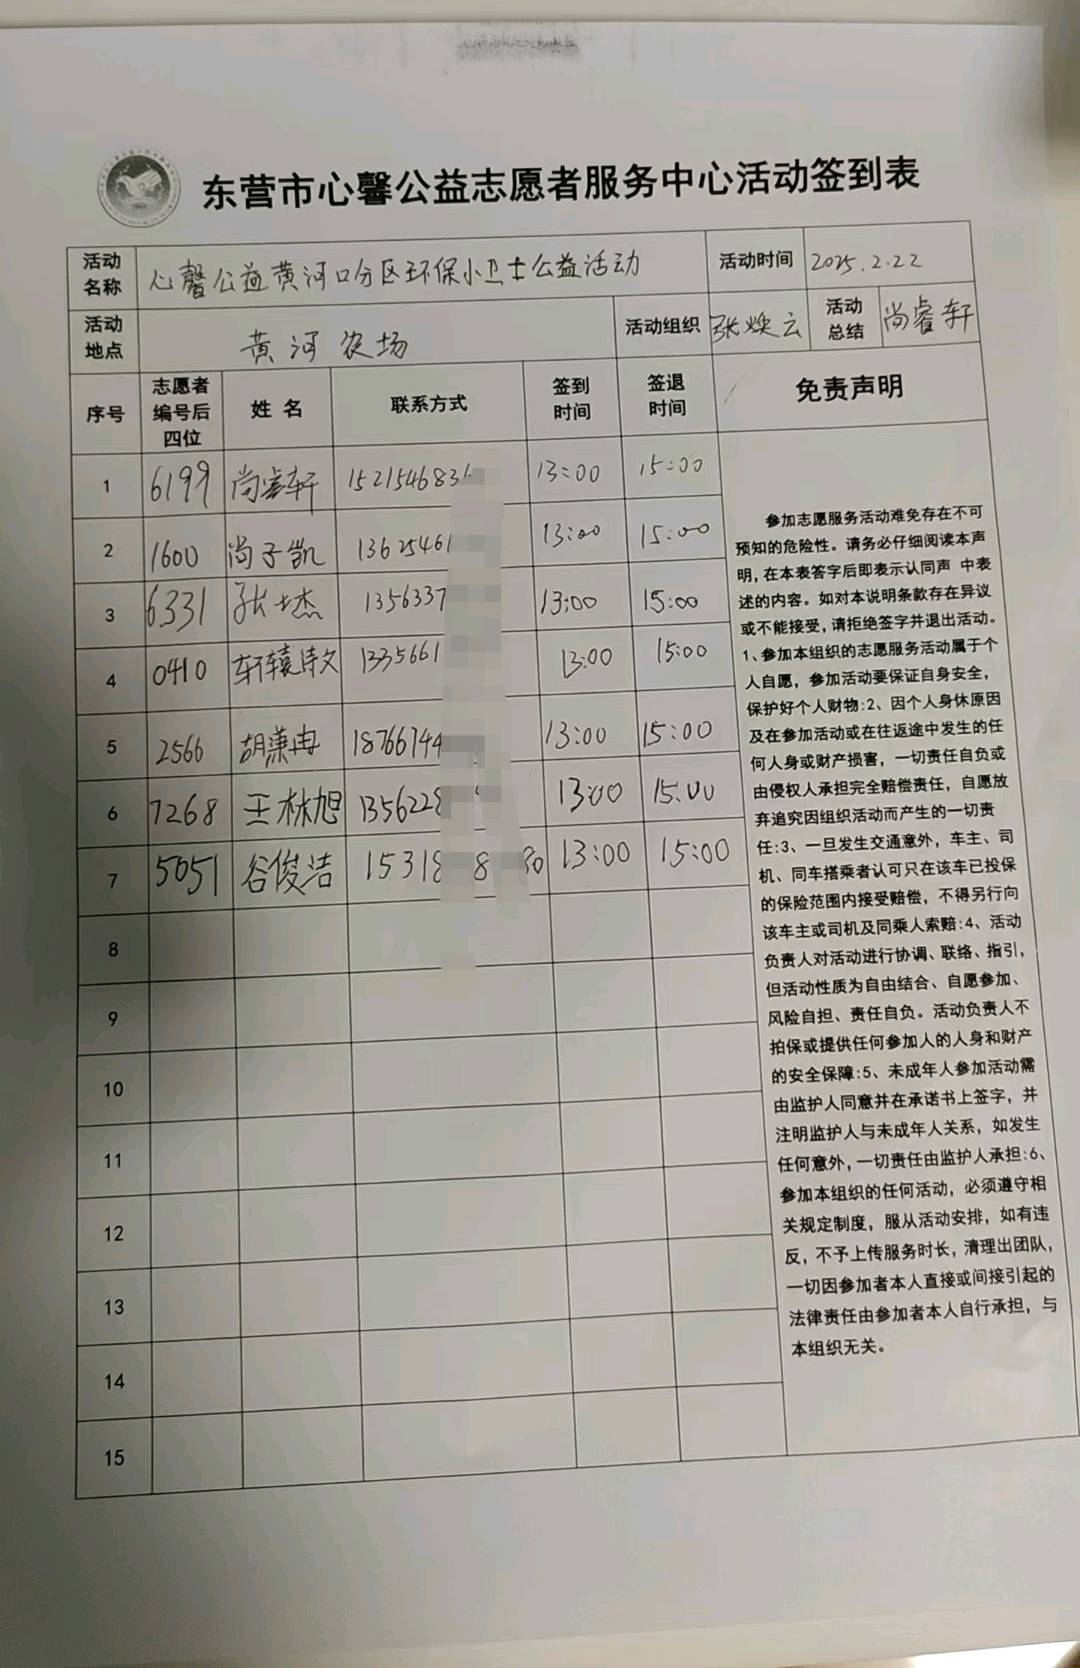 东营市心馨公益志愿者服务中心活动签到表
活动名称 心馨公益黄河口分区环保小卫士公益活动 活动时间 2025.2.22
活动地点 黄河农场 活动组织 张焕云 活动总结 尚睿轩
序号 志愿者编号后四位 姓名 联系方式 签到时间 签退时间 免责声明
1 6199 尚睿轩 152154683 13:00 15:00
2 1600 尚子凯 13625461 13:00 15:00
3 6331 张士杰 1356337 13:00 15:00
4 0410 轩辕诗文 1335661 13:00 15:00
5 2566 胡潇冉 18766744 13:00 15:00
6 7268 王林旭 1356228 13:00 15:00
7 5051 谷俊洁 15318 8 30 13:00 15:00
8
9
10
11
12
13
14
15
参加志愿服务活动难免存在不可
预知的危险性。请务必仔细阅读本声
明,在本表签字后即表示认同声 中表
述的内容。如对本说明条款存在异议
或不能接受,请拒绝签字并退出活动。
1、参加本组织的志愿服务活动属于个
人自愿，参加活动要保证自身安全，
保护好个人财物:2、因个人身休原因
及在参加活动或在往返途中发生的任
何人身或财产损害，一切责任自负或
由侵权人承担完全赔偿责任，自愿放
弃追究因组织活动而产生的一切责
任:3、一旦发生交通意外，车主、司
机、同车搭乘者认可只在该车已投保
的保险范围内接受赔偿，不得另行向
该车主或司机及同乘人索赔:4、活动
负责人对活动进行协调、联络、指引，
但活动性质为自由结合、自愿参加、
风险自担、责任自负。活动负责人不
拍保或提供任何参加人的人身和财产
的安全保障:5、未成年人参加活动需
由监护人同意并在承诺书上签字，并
注明监护人与未成年人关系，如发生
任何意外,一切责任由监护人承担:6、
参加本组织的任何活动，必须遵守相
关规定制度，服从活动安排，如有违
反，不予上传服务时长，清理出团队，
一切因参加者本人直接或间接引起的
法律责任由参加者本人自行承担，与
本组织无关。